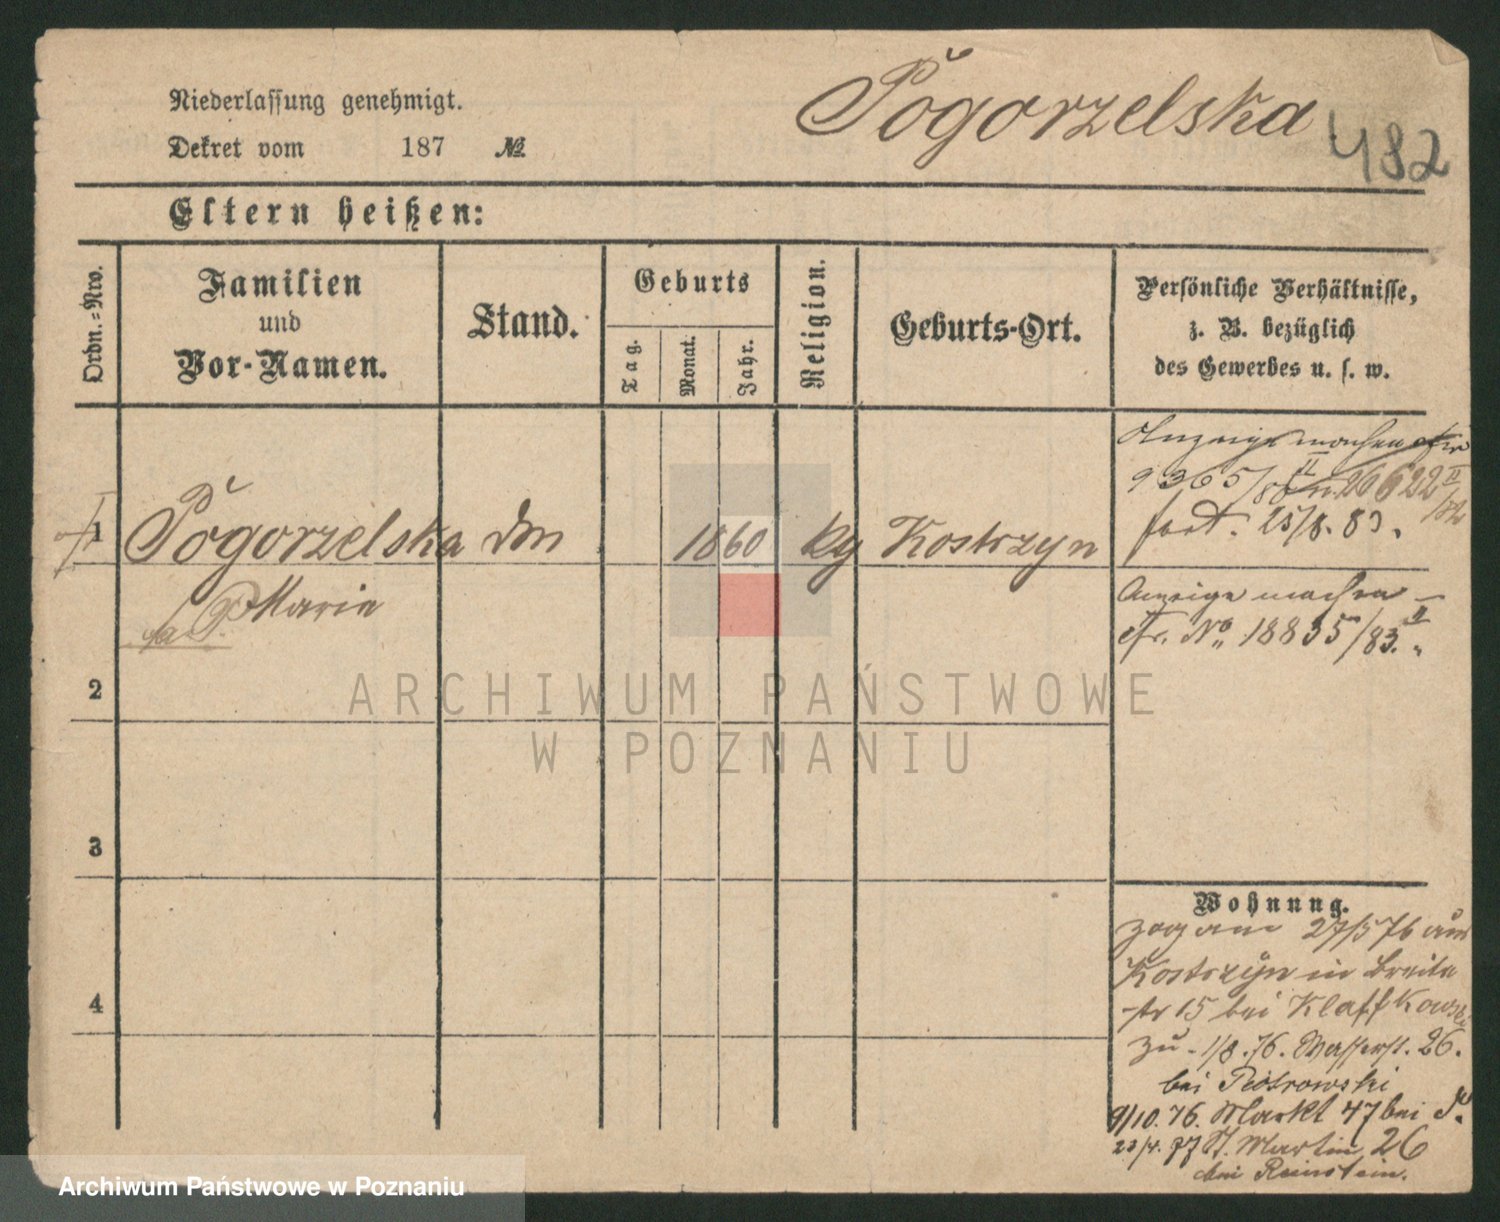 Niederlassung genehmigt.
Dekret vom 187 №
Pogorzelska
482
Eltern heißen:
Ordn.-Nro.
Familien
und
Vor-Namen.
Stand.
Geburts
Tag.
Monat.
Jahr.
Religion.
Geburts-Ort.
Persönliche Verhältnisse,
z. B. bezüglich
des Gewerbes u. s. w.
1 Pogorzelska 1860 Kostrzyn
Marie
Anzeige machen
9365/ 26622 II
fort. 25/8. 83.
Anzeige machen —
cfr. No. 18835/83. II
2
3
4
Wohnung.
zog am 27/5 76 aus
Kostrzyn in Breite
str 15 bei Klaffkowski
zu. 1/8. 76. Wasserst. 26.
bei Piotrowski
9/10. 76. Markt 47 bei P.
23/4. 77 St. Martin 26
bei Reinstein.
ARCHIWUM PAŃSTWOWE
W POZNANIU
Archiwum Państwowe w Poznaniu